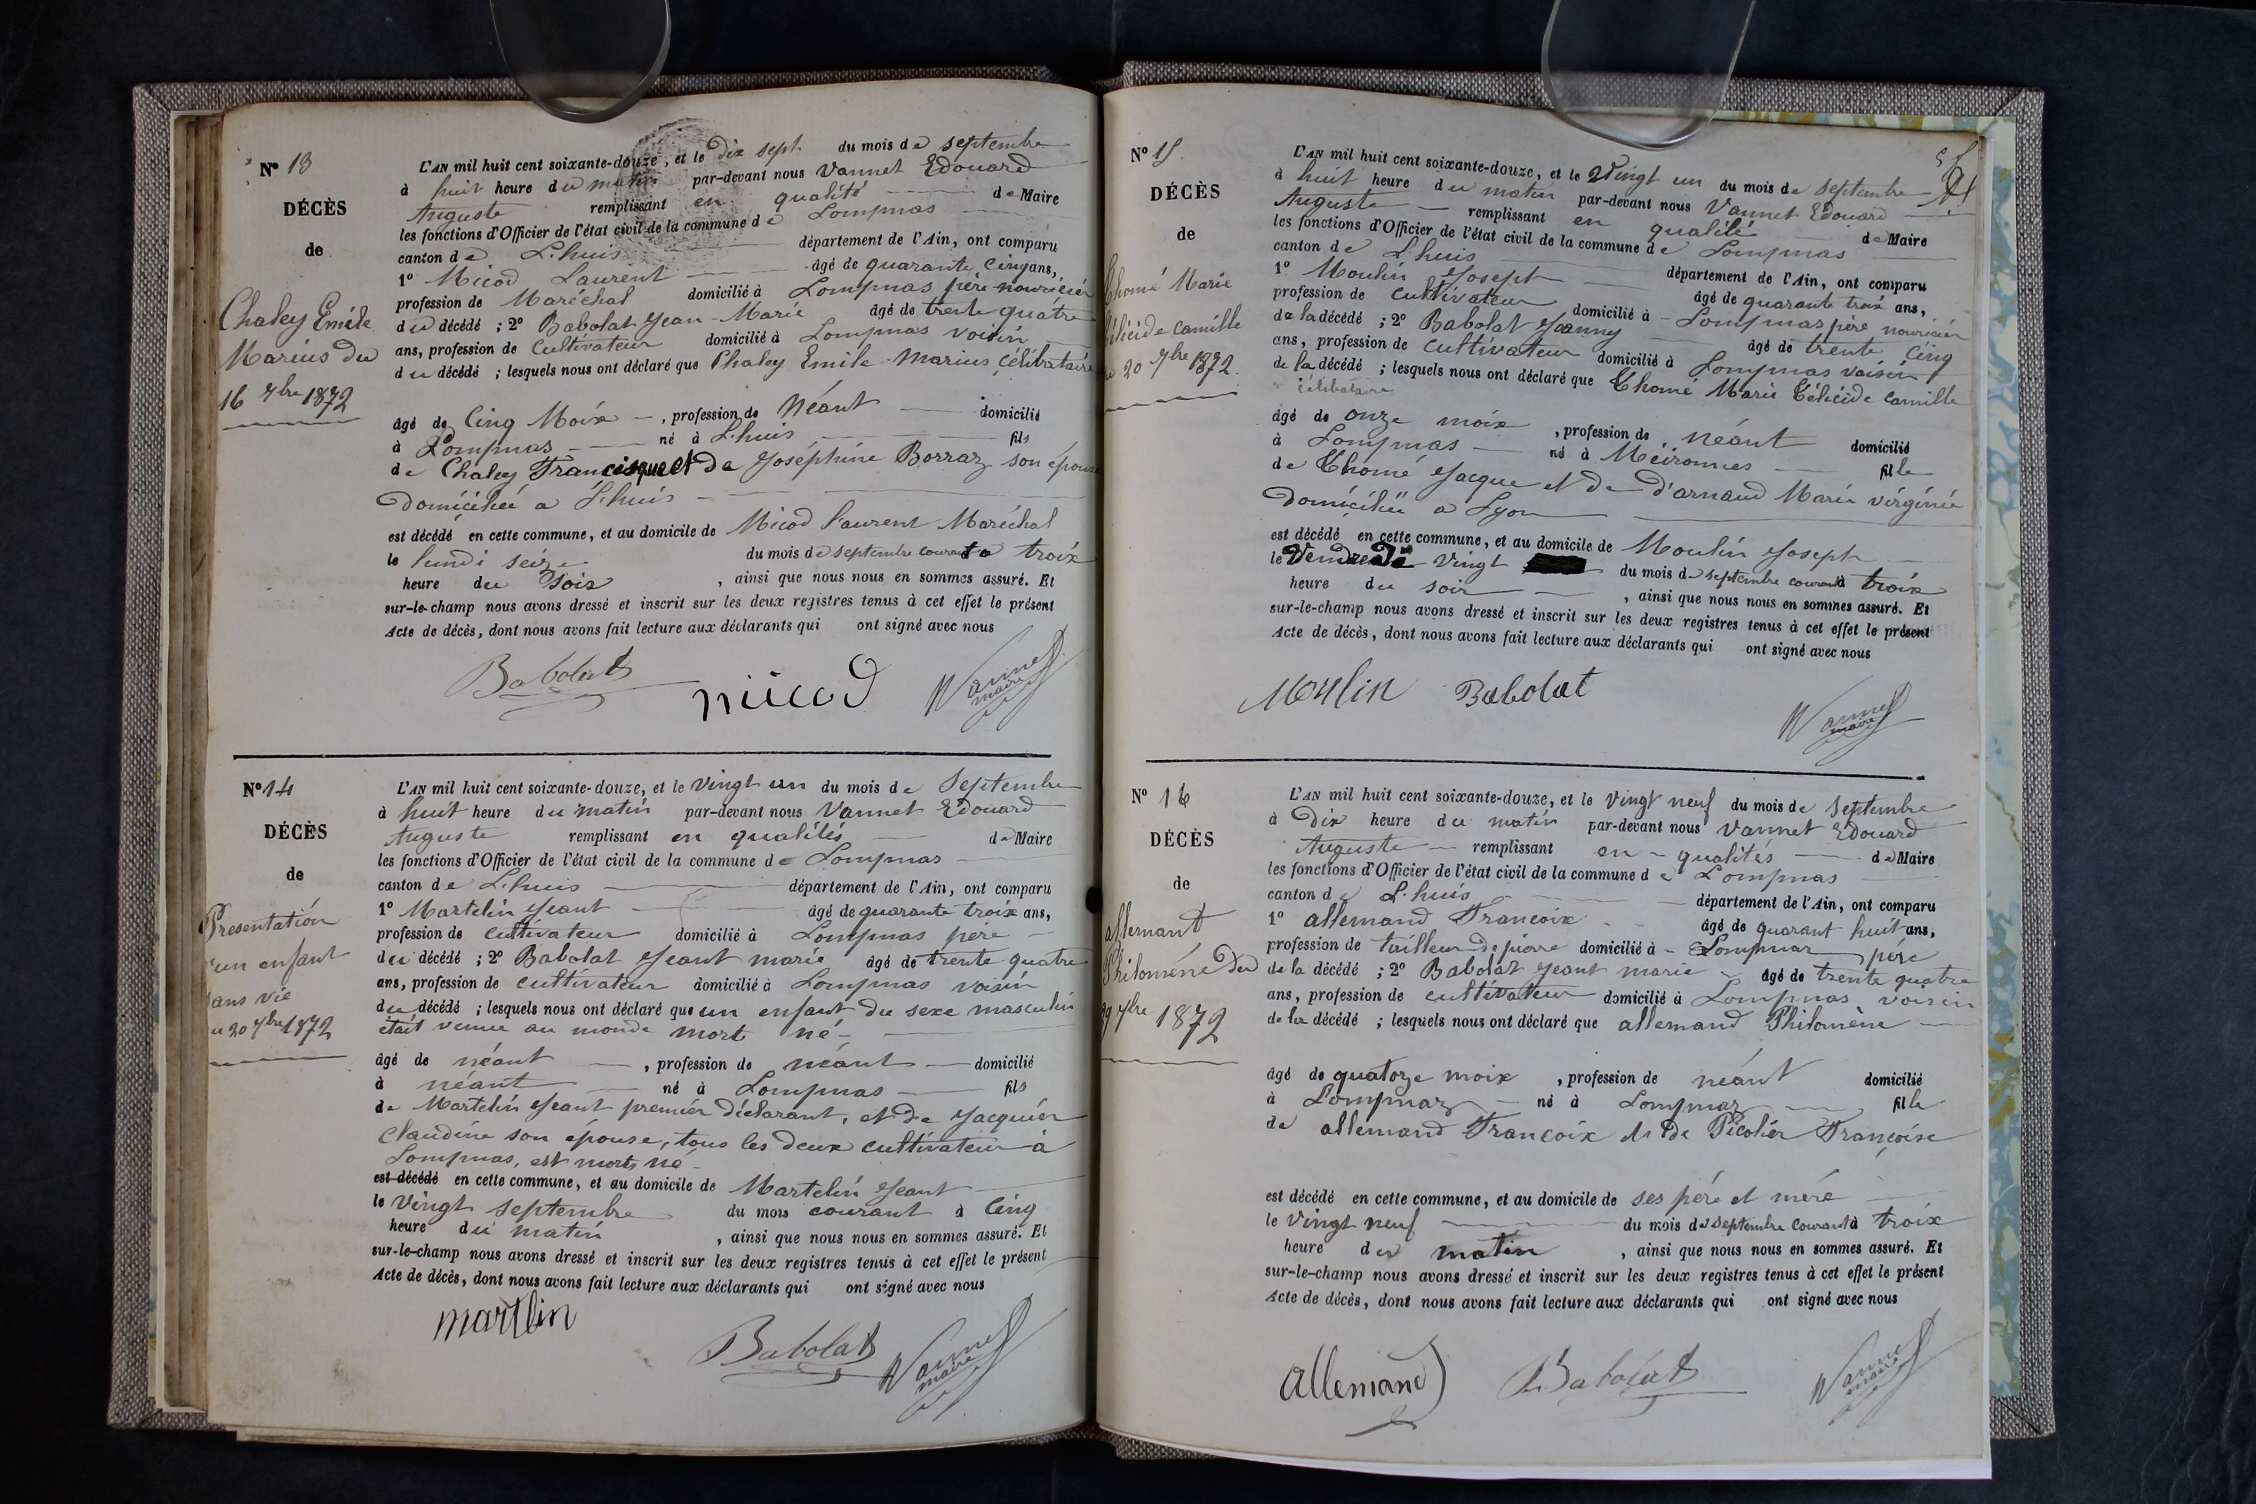 N° 13
DÉCÈS
de
Chaley Emile
Marius du
16 7bre 1872
L'AN mil huit cent soixante-douze, et le Dix sept du mois de septembre
à huit heure du matin par-devant nous Vannet Edouard
Auguste remplissant en qualité de Maire
les fonctions d'Officier de l'état civil de la commune de Lompnas
canton de L.huis département de l'Ain, ont comparu
1° Micod Laurent âgé de quarante Cinq ans,
profession de Maréchal domicilié à Lompnas père nouricier
du décédé ; 2° Babolat Jean-Marie âgé de trente quatre
ans, profession de Cultivateur domicilié à Lompnas voisin
du décédé ; lesquels nous ont déclaré que Chaley Emile Marius Célibataire
âgé de Cinq Moix, profession de Néant domicilié
à Lompnas né à L.huis fils
de Chaley Francisque et de Joséphine Borraz son épouse
Domiciliée a L.huis
est décédé en cette commune, et au domicile de Micod Laurent Maréchal
le lundi seize du mois de septembre courant à troix
heure du Soir, ainsi que nous nous en sommes assuré. Et
sur-le-champ nous avons dressé et inscrit sur les deux registres tenus à cet effet le présent
Acte de décès, dont nous avons fait lecture aux déclarants qui ont signé avec nous
Babolat micod Vannet
maire
N° 14
DÉCÈS
de
Presentation
d'un enfant
sans vie
du 20 7bre 1872
L'AN mil huit cent soixante-douze, et le vingt un du mois de Septembre
à huit heure du matin par-devant nous Vannet Edouard
Auguste remplissant en qualités de Maire
les fonctions d'Officier de l'état civil de la commune de Lompnas
canton de L.huis département de l'Ain, ont comparu
1° Martelin Jeant âgé de quarante troix ans,
profession de cultivateur domicilié à Lompnas père
du décédé ; 2° Babolat Jeant marie âgé de trente quatre
ans, profession de cultivateur domicilié à Lompnas voisin
du décédé ; lesquels nous ont déclaré que un enfant du sexe masculin
était venue au monde mort né
âgé de néant, profession de néant domicilié
à néant né à Lompnas fils
de Martelin Jeant premier déclarant, et de Jacquier
Claudine son épouse, tous les deux cultivateur à
Lompnas, est morts né
est décédé en cette commune, et au domicile de Martelin Jeant
le Vingt septembre du mois courant à Cinq
heure du matin, ainsi que nous nous en sommes assuré. Et
sur-le-champ nous avons dressé et inscrit sur les deux registres tenus à cet effet le présent
Acte de décès, dont nous avons fait lecture aux déclarants qui ont signé avec nous
martlin
Babolat Vannet
maire
N° 15
DÉCÈS
de
Thomé Marie
Félicide Camille
20 7bre 1872
L'AN mil huit cent soixante-douze, et le Vingt un du mois de septembre
à huit heure du matin par-devant nous Vannet Edouard
Auguste remplissant en qualité de Maire
les fonctions d'Officier de l'état civil de la commune de Lompnas
canton de L.huis département de l'Ain, ont comparu
1° Moulin Joseph âgé de quarante troix ans,
profession de cultivateur domicilié à Lompnas père nouricier
de la décédé ; 2° Babolat Joanny âgé de trente cinq
ans, profession de cultivateur domicilié à Lompnas voisin
de la décédé ; lesquels nous ont déclaré que Thomé Marie Félicide camille
célibataire
âgé de onze moix, profession de néant domicilié
à Lompnas né à Meironnes fille
de Thomé Jacque et de d'arnaud Marie virginie
Domiciliée a Lyon
est décédé en cette commune, et au domicile de Moulin Joseph
le Vendredi vingt du mois de septembre courant à troix
heure du soir, ainsi que nous nous en sommes assuré. Et
sur-le-champ nous avons dressé et inscrit sur les deux registres tenus à cet effet le présent
Acte de décès, dont nous avons fait lecture aux déclarants qui ont signé avec nous
Moulin Babolat
Vannet
maire
N° 16
DÉCÈS
de
allemand
Philomène du
29 7bre 1872
L'AN mil huit cent soixante-douze, et le vingt neuf du mois de Septembre
à Dix heure du matin par-devant nous Vannet Edouard
Auguste remplissant en qualités de Maire
les fonctions d'Officier de l'état civil de la commune de Lompnas
canton de L.huis département de l'Ain, ont comparu
1° allemand Francoix âgé de quarant huit ans,
profession de tailleur de pierre domicilié à Lompnas père
de la décédé ; 2° Babolat Jeant marie âgé de trente quatre
ans, profession de cultivateur domicilié à Lompnas voisin
de la décédé ; lesquels nous ont déclaré que allemand Philomène
âgé de quatorze moix, profession de néant domicilié
à Lompnaz né à Lompnaz fille
de allemand Françoix et de Picolier Françoise
est décédé en cette commune, et au domicile de ses père et mère
le Vingt neuf du mois de septembre courant à troix
heure du matin, ainsi que nous nous en sommes assuré. Et
sur-le-champ nous avons dressé et inscrit sur les deux registres tenus à cet effet le présent
Acte de décès, dont nous avons fait lecture aux déclarants qui ont signé avec nous
allemand Babolat Vannet
maire